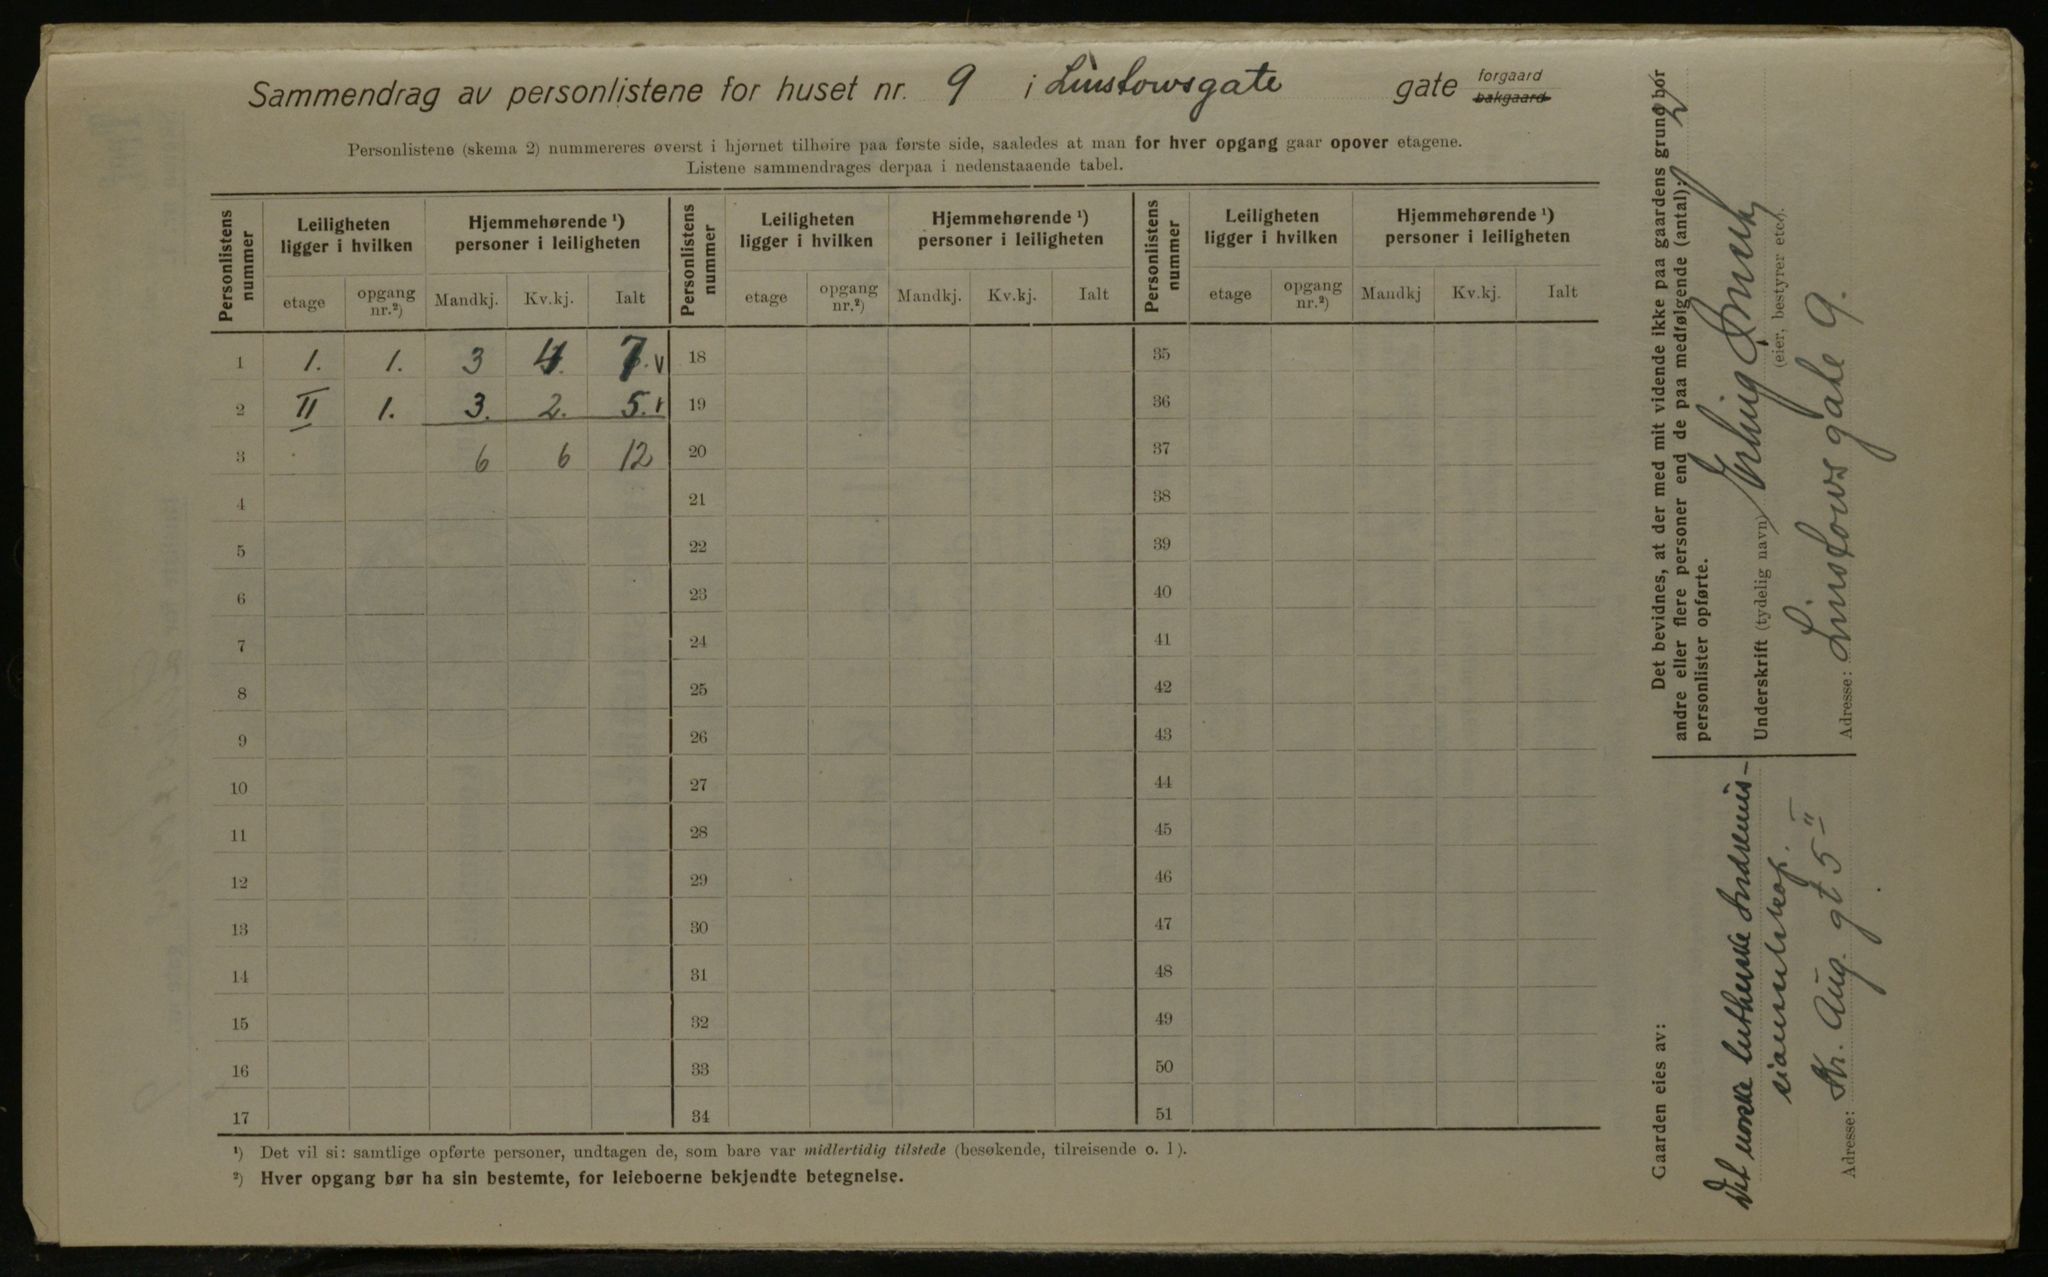 Sammendrag av personlistene for huset nr. 9 i Linstowsgate gate forgaard bakgaard
Personlistene (skema 2) nummereres øverst i hjørnet tilhøire paa første side, saaledes at man for hver opgang gaar opover etagene.
Listene sammendrages derpaa i nedenstaaende tabel.
Personlistens nummer
Leiligheten ligger i hvilken
Hjemmehørende ¹) personer i leiligheten
Personlistens nummer
Leiligheten ligger i hvilken
Hjemmehørende ¹) personer i leiligheten
Personlistens nummer
Leiligheten ligger i hvilken
Hjemmehørende ¹) personer i leiligheten
etage opgang nr.²) Mandkj. Kv.kj. Ialt etage opgang nr.²) Mandkj. Kv.kj. Ialt etage opgang nr.²) Mandkj Kv.kj. Ialt
1 1. 1. 3 4. 7. v 18 35
2 II 1. 3. 2. 5. v 19 36
3 6 6 12 20 37
4 21 38
5 22 39
6 23 40
7 24 41
8 25 42
9 26 43
10 27 44
11 28 45
12 29 46
13 30 47
14 31 48
15 32 49
16 33 50
17 34 51
¹) Det vil si: samtlige opførte personer, undtagen de, som bare var midlertidig tilstede (besøkende, tilreisende o. l).
²) Hver opgang bør ha sin bestemte, for leieboerne bekjendte betegnelse.
Det bevidnes, at der med mit vidende ikke paa gaardens grund bor
andre eller flere personer end de paa medfølgende (antal): 2
personlister opførte.
Underskrift (tydelig navn) Erling
(eier, bestyrer etc.).
Adresse: Linstows gate 9.
Gaarden eies av:
Det norske lutherske Indremis-
sionsselskap.
Adresse: Kr. Aug. gt 5 II